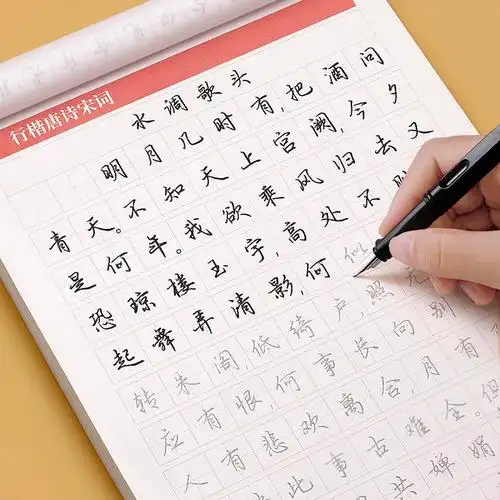 行楷唐诗宋词
水调歌头
明月几时有,把酒问
青天。不知天上宫阙,今夕
是何年。我欲乘风归去又
恐琼楼玉宇,高处不
起舞弄清影,何似
转朱阁低绮户,照无
应有恨,何事长向别
人有悲欢离合,月有
此事古难全。但
共婵娟